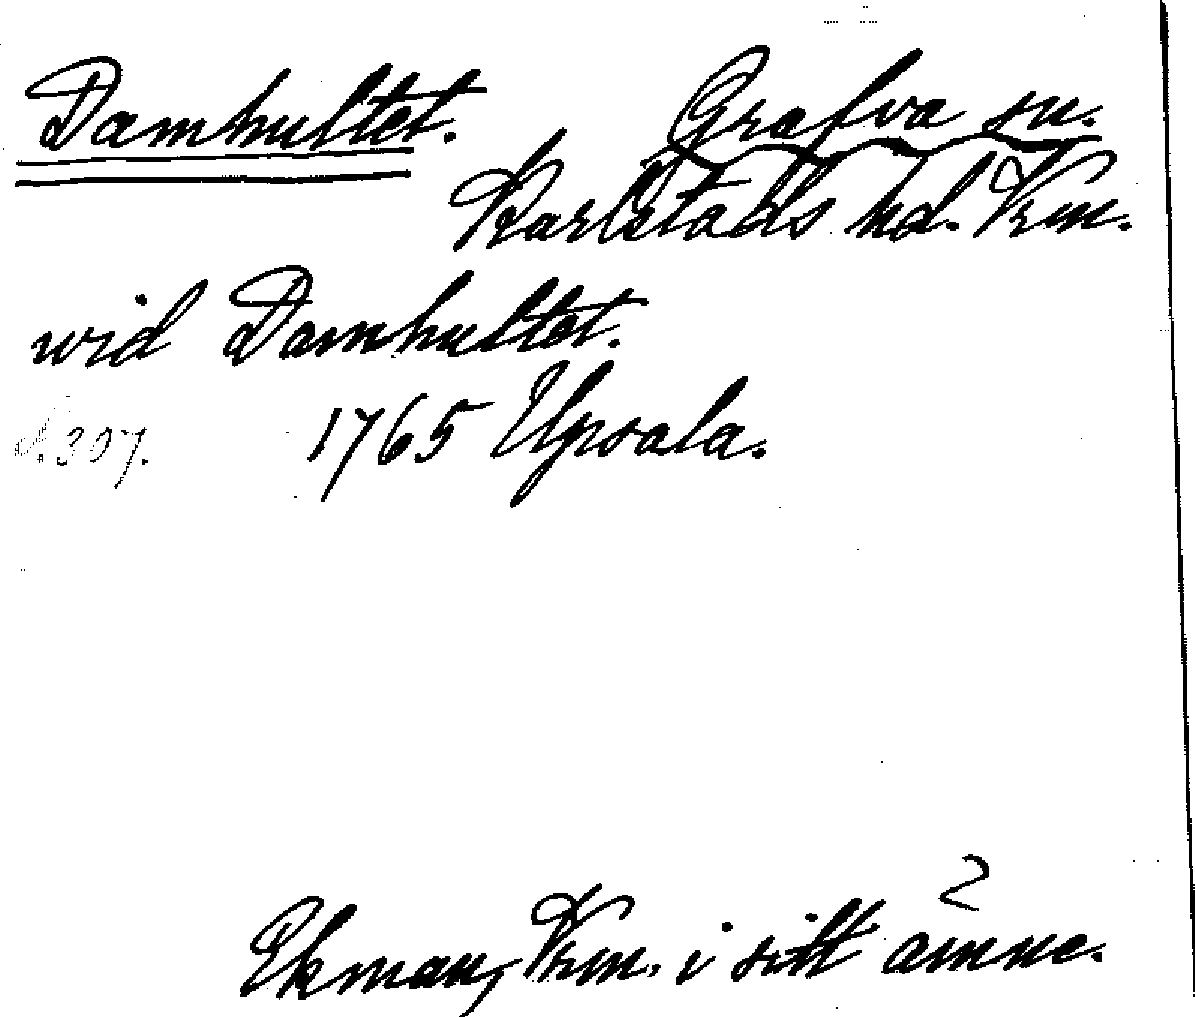 Damhultet. Grafva sn.
Karlstads hd. Vrm.
wid Damhultet.
s. 307. 1765 Upsala.
2
Ekman, Vrm. i sitt ämne.